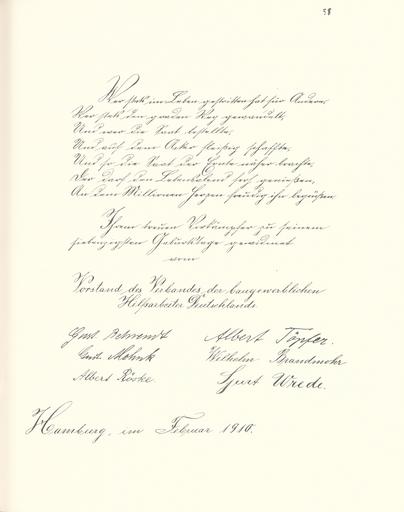 58
Wer stets im Leben gestritten hat für Andere,
Wer stets den graden Weg gewandelt,
Und wer die Saat bestellte,
Und auf dem Acker fleißig schaffte,
Und so die Saat der Ernte näher brachte,
Der darf den Lebensabend froh genießen,
An dem Millionen Herzen freudig ihn begrüßen.
Ihrem treuen Vorkämpfer zu seinem
siebenzigsten Geburtstage gewidmet
vom
Vorstand des Verbandes der baugewerblichen
Hilfsarbeiter Deutschlands
Gust. Behrendt Albert Töpfer.
Gust. Wilhelm Brandmohr
Albert Wrede.
Hamburg, im Februar 1910.